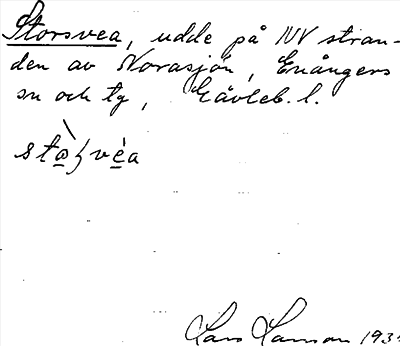 Storsvea, udde på NV stran-
den av Norasjön, Enångers
sn och tg, Gävleb. l.
stò̱ʃvè̱a
Lars Larson 193